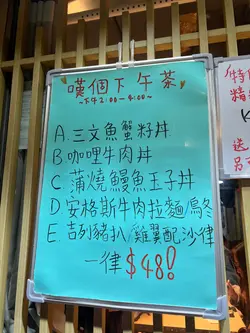 嘆個下午茶
~下午2:00-4:00~
A.三文魚蟹籽丼
B咖哩牛肉丼
C蒲燒鰻魚玉子丼
D安格斯牛肉拉麵/烏冬
E.吉列豬扒/雞翼配沙律
一律$48!
特
精
送